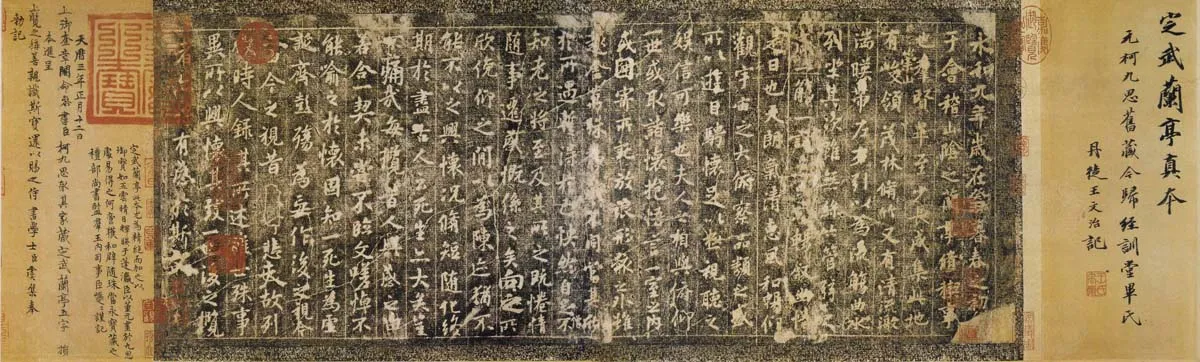 定武蘭亭真本
元柯九思舊藏今歸經訓堂畢氏
丹徒王文治記
永和九年歲在癸丑暮春之初會
于會稽山陰之蘭亭脩稧事
也羣賢畢至少長咸集此地
有峻領茂林脩竹又有清流激
湍暎帶左右引以為流觴曲水
列坐其次雖無絲竹管弦之
盛一觴一詠亦足以暢敘幽情
是日也天朗氣清惠風和暢仰
觀宇宙之大俯察品類之盛
所以遊目騁懷足以極視聽之
娛信可樂也夫人之相與俯仰
一世或取諸懷抱悟言一室之內
或因寄所託放浪形骸之外雖
趣舍萬殊靜躁不同當其欣
於所遇蹔得於己怏然自足不
知老之將至及其所之既惓情
隨事遷感慨係之矣向之所
欣俛仰之間以為陳迹猶不
能不以之興懷況脩短隨化終
期於盡古人云死生亦大矣豈
不痛哉每攬昔人興感之由
若合一契未嘗不臨文嗟悼不
能喻之於懷固知一死生為虛
誕齊彭殤為妄作後之視今
亦由今之視昔悲夫故列
敘時人錄其所述雖世殊事
異所以興懷其致一也後之攬
者亦將有感於斯文
定武蘭亭此本尤為精絕而加之以
御寶如五雲晴日輝映于蓬瀛臣以董元畫於九思
處易得之何啻獲和璧隨珠當永寶藏之
禮部尚書監羣玉內司事臣巙巙謹記
天曆三年正月十二日
上御奎章閣命參書臣柯九思取其家藏定武蘭亭五字損
本進呈
上覽之稱善親識斯寶還以賜之侍書學士臣虞集奉
勅記